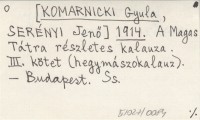 [KOMARNICKI Gyula,
SERÉNYI Jenő] 1914. A Magas
Tátra részletes kalauza.
III. kötet (hegymászókalauz).
— Budapest. Ss.